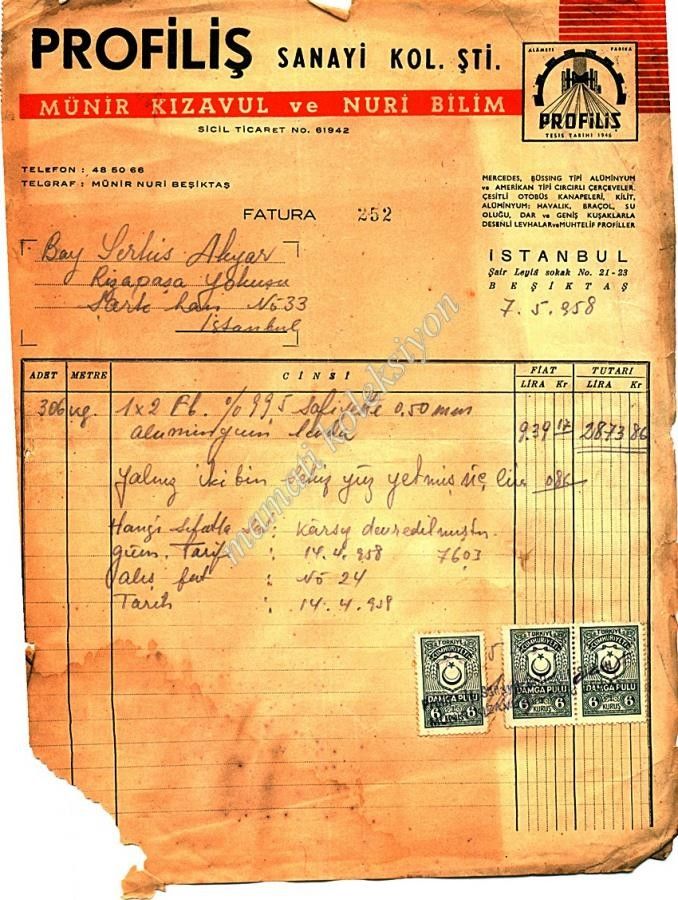 PROFİLİŞ SANAYİ KOL. ŞTİ.
MÜNİR KIZAVUL ve NURİ BİLİM
SİCİL TİCARET No. 61942
ALAMETİ FARİKA
PROFİLİŞ
TESİS TARİHİ 1946
TELEFON : 48 50 66
TELGRAF : MÜNİR NURİ BEŞİKTAŞ
MERCEDES, BÜSSING TİPİ ALÜMİNYUM
ve AMERİKAN TİPİ CIRCIRLI ÇERÇEVELER.
ÇEŞİTLİ OTOBÜS KANAPELERİ, KİLİT,
ALÜMİNYUM; HAVALIK, BRAÇOL, SU
OLUĞU, DAR ve GENİŞ KUŞAKLARLA
DESENLİ LEVHALAR ve MUHTELİF PROFİLLER
FATURA 252
Bay Serkis Akyar
Rızapaşa Yokuşu
Şark han No 33
İstanbul
İSTANBUL
Şair Leylâ sokak No. 21-23
BEŞİKTAŞ
7.5.958
ADET METRE CİNSİ FİAT TUTARI
LİRA Kr LİRA Kr
306 kg. 1x2 Eb. %99 5 safiyette 0,50 mm
aluminyum levha 939 17 2873 86
Yalnız iki bin sekiz yüz yetmiş üç lira 086
Hangi sıfatla : Karşı devredilmiştir
Güm. Tarif : 14.4.958 7603
alış fat : No 24
Tarih : 14.4.958
TÜRKİYE CUMHURİYETİ
DAMGA PULU
6 KURUŞ 6
TÜRKİYE CUMHURİYETİ
DAMGA PULU
6 KURUŞ 6
TÜRKİYE CUMHURİYETİ
DAMGA PULU
6 KURUŞ 6
mamati koleksiyon